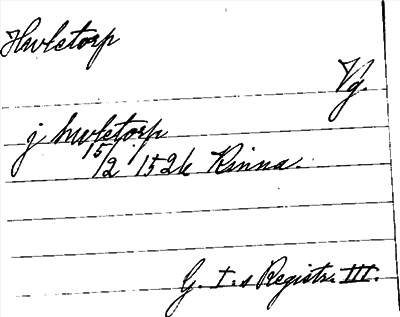 Hvletorp
Vg.
j hvletorp
15/2 1526 Kinna.
G. I:s Registr. III.